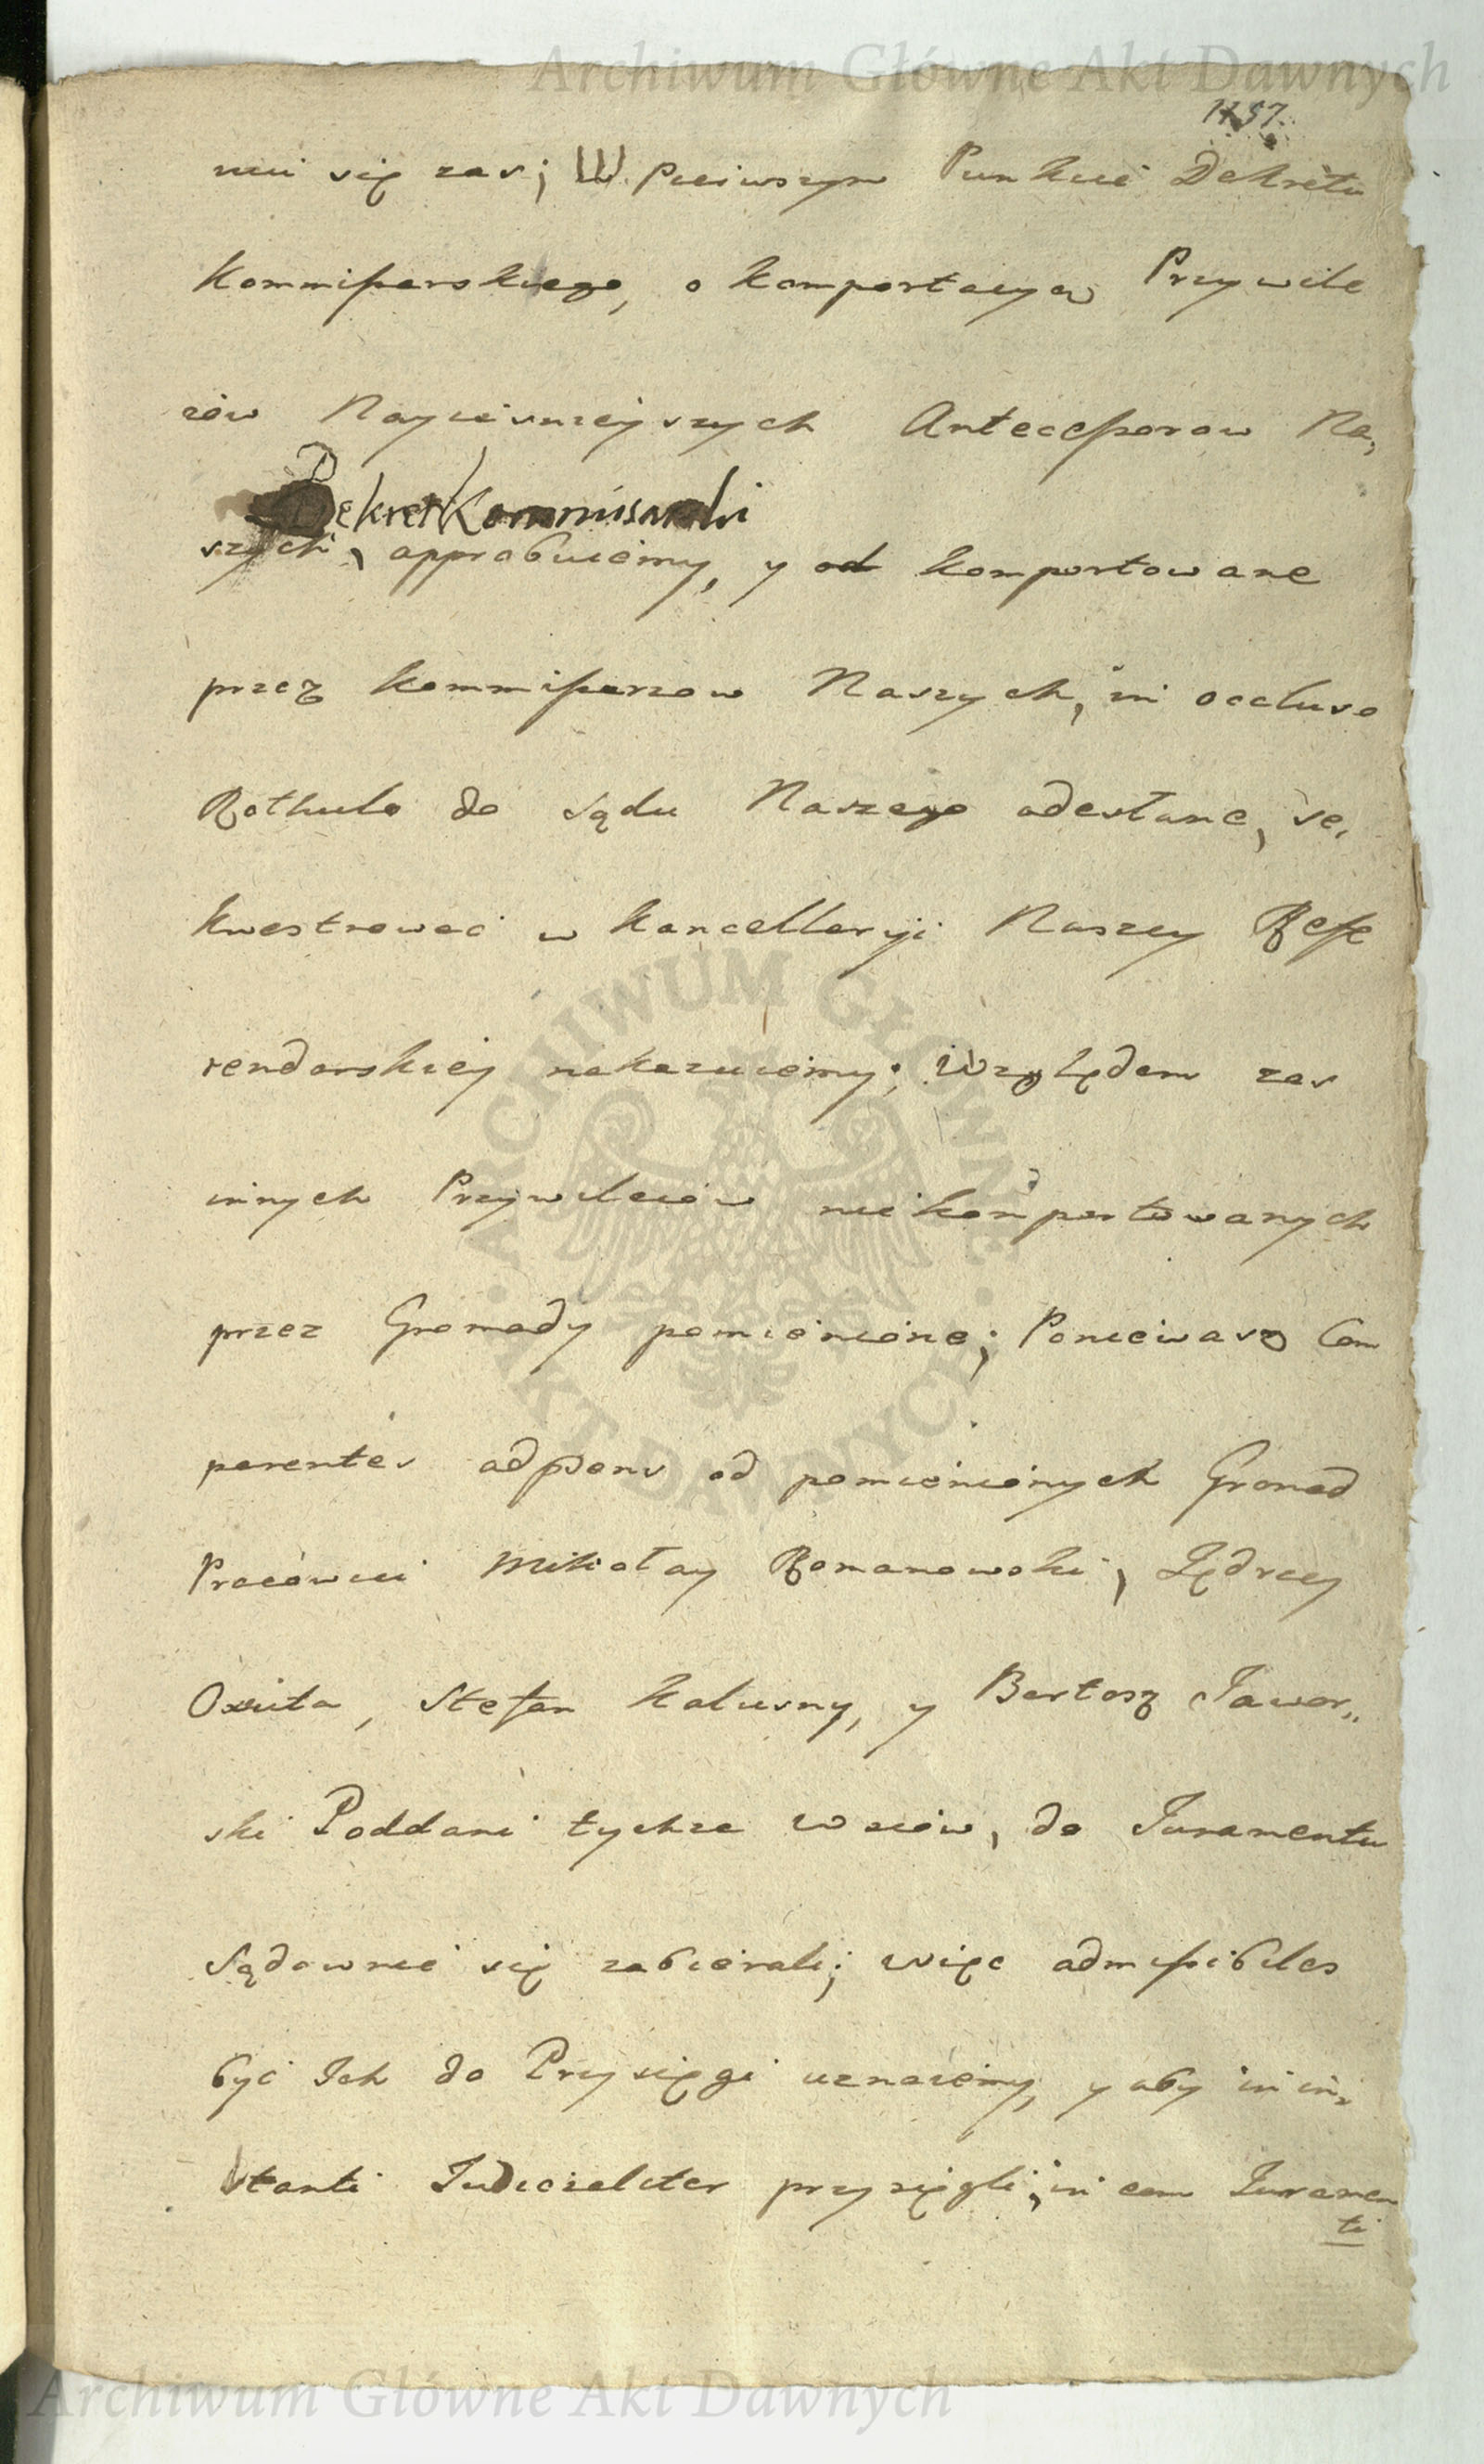 Archiwum Główne Akt Dawnych
1757.
nia się zaś; W Pierwszym Punkcie Dekretu
Kommissarskiego, o komportacyą Przywile
iów Nayiaśnieyszych Antecessorow Na,
Dekret Kommissarski
szych, approbuiemy, y od komportowane
przez Kommissarzow Naszych, in occluso
Rothulo do Sądu Naszego odesłane, se,
kwestrować w Kancellaryi Naszey Refe
rendarskiey nakazuiemy; Względem zas
innych Przywileiów nie komportowanych
przez Gromady pomienione; Poniewasz Com
parentes adpraens od pomienionych Gromad
Pracowici Mikołay Romanowski, Jędrzey
Oxiuta, Stefan Kalusny, y Bartosz Jawor,,
ski Poddani tychze Wsiów, do Juramentu
Sądownie się zabierali; więc admissibiles
być Ich do Przysięgi uznaiemy, y aby in in,
stanti Judicialiter przysięgli, in eam Juramen
ti
ARCHIWUM GŁÓWNE · AKT DAWNYCH ·
Archiwum Główne Akt Dawnych